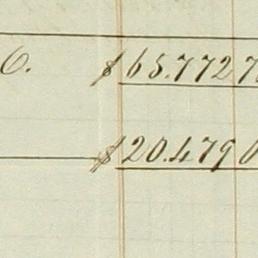 6. $65.772 7
$20.479 0